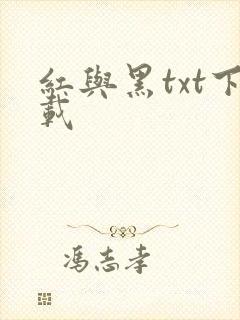 紅與黑txt下
載
馮志孝